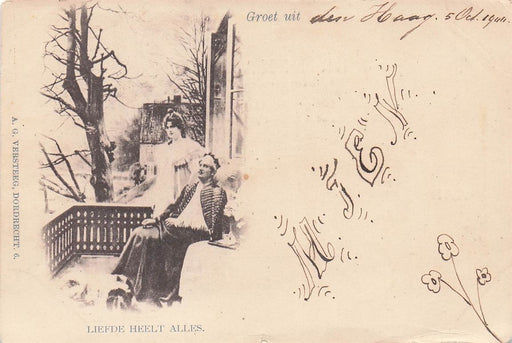 Groet uit den Haag. 5 Oct. 1900.
MIEN
A. G. VERSTEEG, DORDRECHT. 6.
LIEFDE HEELT ALLES.